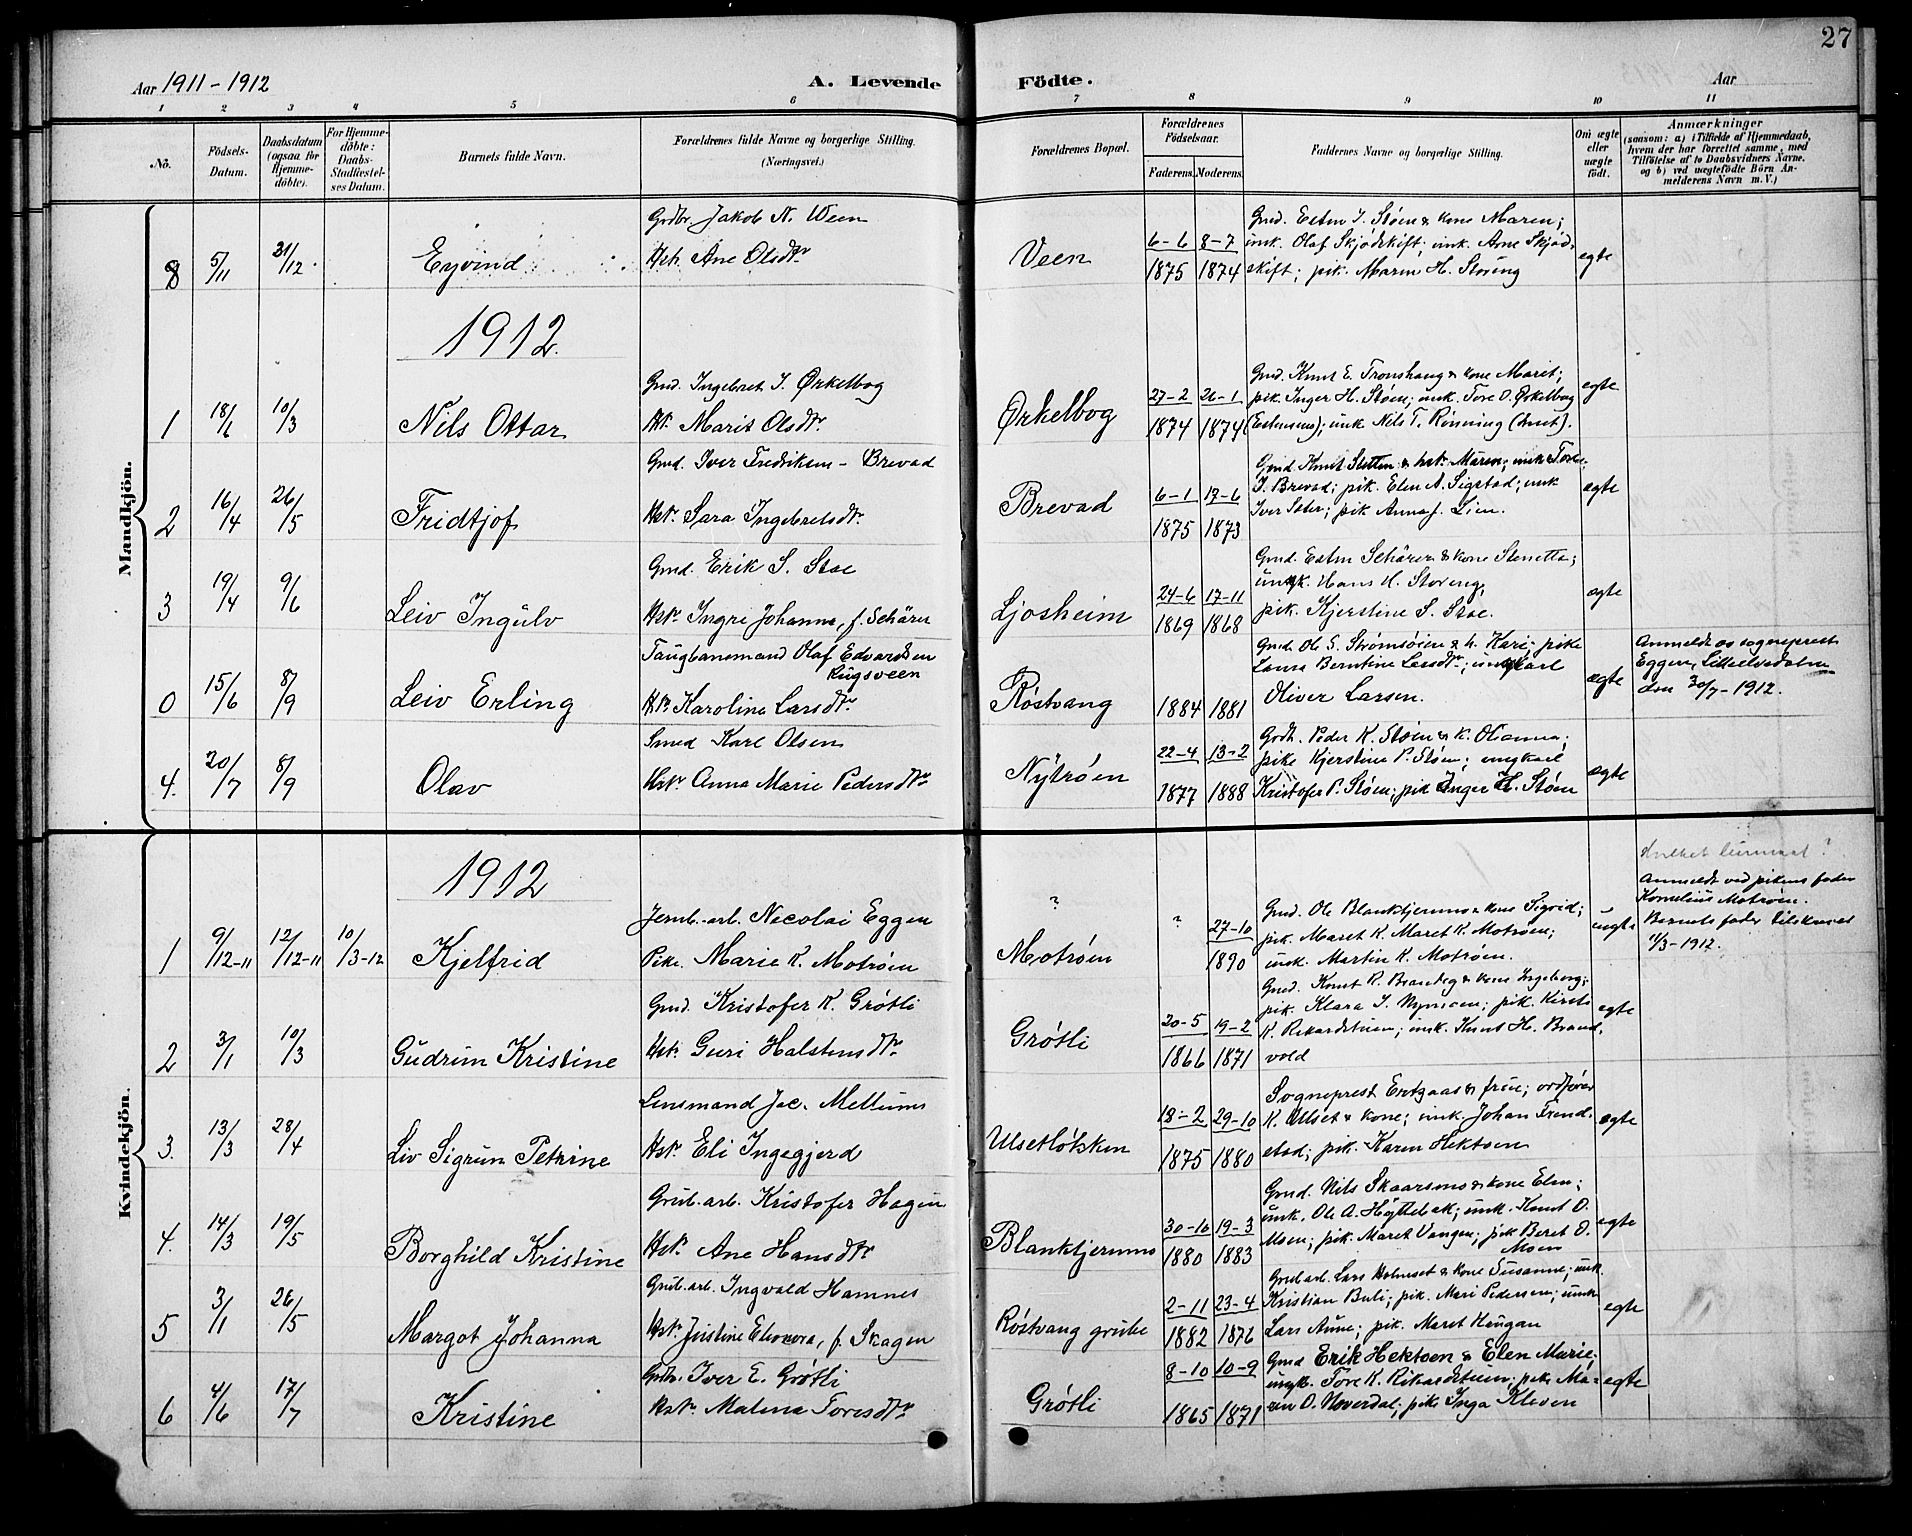 27
Aar 1911-1912
A. Levende Födte.
Aar
1 2 3 4 5 6 7 8 9 10 11
No.
Födsels-Datum.
Daabsdatum (ogsaa for Hjemme-döbte).
For Hjemme-döbte: Daabs-Stadfæstel-ses Datum.
Barnets fulde Navn.
Forældrenes fulde Navne og borgerlige Stilling. (Næringsvei.)
Forældrenes Bopæl.
Forældrenes Födselsaar.
Faderens. Moderens.
Faddernes Navne og borgerlige Stilling.
Om ægte eller uægte födt.
Anmærkninger
(saasom: a) i Tilfælde af Hjemmedaab, hvem der har forrettet samme, med Tilföielse af to Daabsvidners Navne. og b) ved uægtefödte Börn An-melderens Navn m. V.)
Mandkjön.
8 5/11 31/12 Eyvind
Grdbr. Jakob N. Ween
Hst. Ane Olsdtr.
Veen
6-6 1875 8-7 1874
Gmd. Esten J. Støen & kone Maren;
umk. Olaf Skjødskift; umk. Arne Skjød-
skift; pik. Maren H. Storeng
egte
1912.
1 18/6 10/3 Nils Ottar
Gmd. Ingebret J. Ørkelbog
Hst. Marit Olsdtr.
Ørkelbog
27-2 1874 26-1 1874
Gmd. Knut E. Tronshaug & kone Marit;
pik. Inger H. Støen; umk. Tore O. Ørkelbog
(Estensens); umk Nils T. Rønning
egte
2 16/4 26/5 Fridtjof
Gmd. Iver Fredriksen - Brevad
Hst. Sara Ingebretsdtr.
Brevad
6-1 1875 17-6 1873
Gmd. Knut Sletten & hst. Maren; umk Tore
J. Brevad; pik. Elen A. Sigstad; umk
Iver Sæter; pik Anna J. Lien.
egte
3 19/4 9/6 Leiv Ingulv
Gmd. Erik S. Stoe
Hst. Ingri Johanne, f. Schärer
Ljosheim
24-6 1869 17-11 1868
Gmd. Esten Schärer & kone Stenetta;
ungk. Hans H. Storeng,
pik. Kjerstine S. Stoe.
egte
0 15/6 8/9 Leiv Erling
Taugbanemand Olaf Edvardsen Ringsveen
Hst. Karoline Larsdtr.
Røstvang
1884 1881
Gmd. Ole S. Strømsøien & h. Kari; pike
Laura Berntine Larsdtr.; ungkarl
Oliver Larsen.
egte
Anmeldt av sogneprest
Eggen, Lilleelvedalen
den 30/7-1912.
4. 20/7 8/9 Olav
Smed Karl Olsen
Hst. Anna Marie Pedersdtr.
Nytrøen
22-4 1877 13-2 1888
Godb. Peder K. Støen & k. Olianna;
pike Kjerstine P. Støen; ungkarl
Kristofer P. Støen; pik Inger H. Støen
egte
Kvindekjön.
1912
1 9/12-11 12/12-11 10/3-12 Kjelfrid
Jernb.-arb. Nicolai Eggen
Pike. Marie K. Motrøen
?
Motrøen
? 27-10 1890
Gmd. Ole Blanktjernmo & kone Sigrid;
pik. Maret K. Maret K. Motrøen;
umk. Martin K. Motrøen.
uegte
Anmeldt ved pikens fader
Kornelius Motrøen.
Barnets fader tilskrevet
11/3-1912.
2 3/1 10/3 Gudrun Kristine
Gmd. Kristofer K. Grøtli
Hst. Guri Halstensdtr.
Grøtli
20-5 1866 19-2 1871
Gmd. Knut R. Brandeg & kone Ingeborg;
pik. Klara J. Nymoen; pik. Kirsti
K. Rikardstuen; umk. Knut H. Brand-
vold
egte
3. 13/3 28/4 Liv Sigrun Petrine
Lensmand Jac. Mellum
Hst. Eli Ingegjerd
Ulsetløkken
18-2 1875 29-10 1880
Sogneprest Ertzaas & frue; ordfører
K. Ulset & kone; umk. Johan Trend-
stad; pik. Karen Hektoen
egte
4. 14/3 19/5 Borghild Kristine
Grub.-arb. Kristofer Hagen
Hst. Ane Hansdtr
Blanktjernmo
30-10 1880 19-3 1883
Gmd. Nils Skaarsmo & kone Elen;
umk. Ole A. Høttebak; umk. Knut O.
Moen; pik. Maret Vangen; pik Beret O.
Moen
egte
5 3/1 26/5 Margot Johanna
Grub.arb. Ingvald Hamnes
Hst. Justine Eleonora, f. Skagen
Røstvang grube
2-11 1882 23-4 1876
Grubarb. Lars Holmset & kone Susanne; umk.
Kristian Buli; pik. Mari Pedersen; umk
Lars Aune; pik. Maret Haugan
egte
6 4/6 17/7 Kristine
Grdbr. Iver E. Grøtli
Hst. Malena Toresdtr.
Grøtli
8-10 1865 10-9 1871
Gmd Erik Hektoen & Elen Marie;
ungk. Tore K. Rikardstuen; pike Ma-
ren O. Hoverdal; pike Inga Kleven
egte